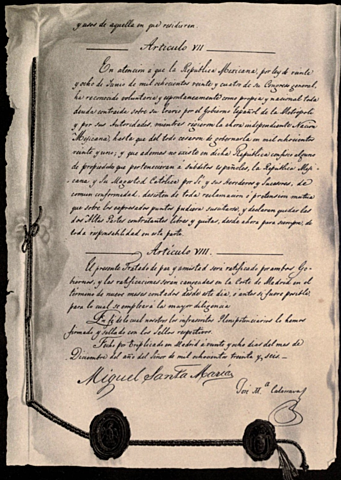 y usos de aquella en que residieren.
Articulo VII
En atención a que la República Mexicana, por ley de veinte
y ocho de Junio de mil ochocientos veinte y cuatro de su Congreso general,
ha reconocido voluntaria y espontaneamente como propia y nacional toda
deuda contraida sobre su Erario por el Gobierno español de la Metropoli
y por sus Autoridades, mientras rigieron la ahora independiente Nación
Mexicana, hasta que del todo cesaron de gobernarla en mil ochocientos
veinte y uno; y que ademas no existe en dicha República confisco alguno
de propiedades que pertenecieran á Subditos españoles, la República Meji-
cana, y Su Magestad Católica por Si y sus herederos y sucesores, de
comun conformidad, desisten de toda reclamacion ó pretension mutua
que sobre los expresados puntos pudiera suscitarse, y declaran quedar las
dos Altas Partes contratantes libres y quitas, desde ahora para siempre, de
toda responsabilidad en esta parte.
Articulo VIII.
El presente Tratado de paz y amistad será ratificado por ambos Go-
biernos, y las ratificaciones serán cangeadas en la Corte de Madrid en el
término de nueve meses contados desde este dia, ó antes si fuere posible,
para lo cual se empleará la mayor diligencia.
En fé de lo cual nosotros los infrascritos Plenipotenciarios lo hemos
firmado y sellado con los Sellos respectivos.
Fecho por triplicado en Madrid á veinte y ocho dias del mes de
Diciembre del año del Señor de mil ochocientos treinta y seis.
Miguel Santa María
José M.ª Calatrava